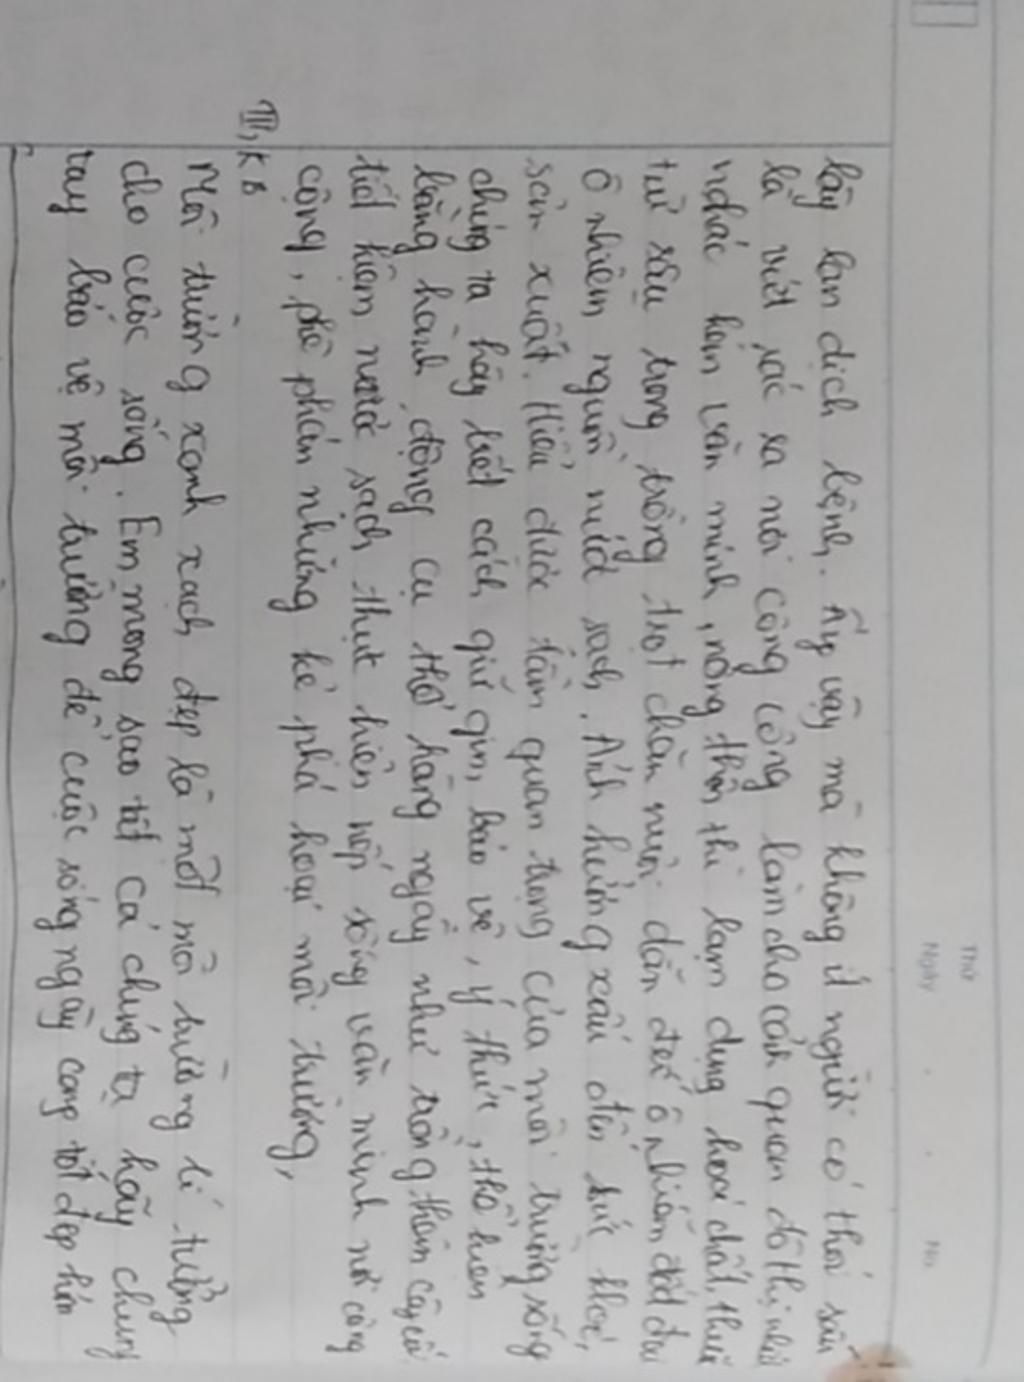 Thứ
Ngày No
lây lan dịch bệnh. Ấy vậy mà không ít người có thói xấu
là vứt rác ra nơi công cộng làm cho cảnh quan đô thị nhếch
nhác kém văn minh, nông thôn thì lạm dụng hoá chất, thuốc
trừ sâu trong trồng trọt chăn nuôi dẫn đến ô nhiễm đất đai
ô nhiễm nguồn nước sạch. Ảnh hưởng xấu đến sức khoẻ,
sản xuất. Hiểu được tầm quan trọng của môi trường sống
chúng ta hãy biết cách giữ gìn, bảo vệ, ý thức, thể hiện
bằng hành động cụ thể hằng ngày như trồng thêm cây cối
tiết kiệm nước sạch, thực hiện nếp sống văn minh nơi công
cộng, phê phán những kẻ phá hoại môi trường,
III, KB
Môi trường xanh xạch đẹp là một môi trường lí tưởng
cho cuộc sống. Em mong sao tất cả chúng ta hãy chung
tay bảo vệ môi trường để cuộc sống ngày càng tốt đẹp hơn